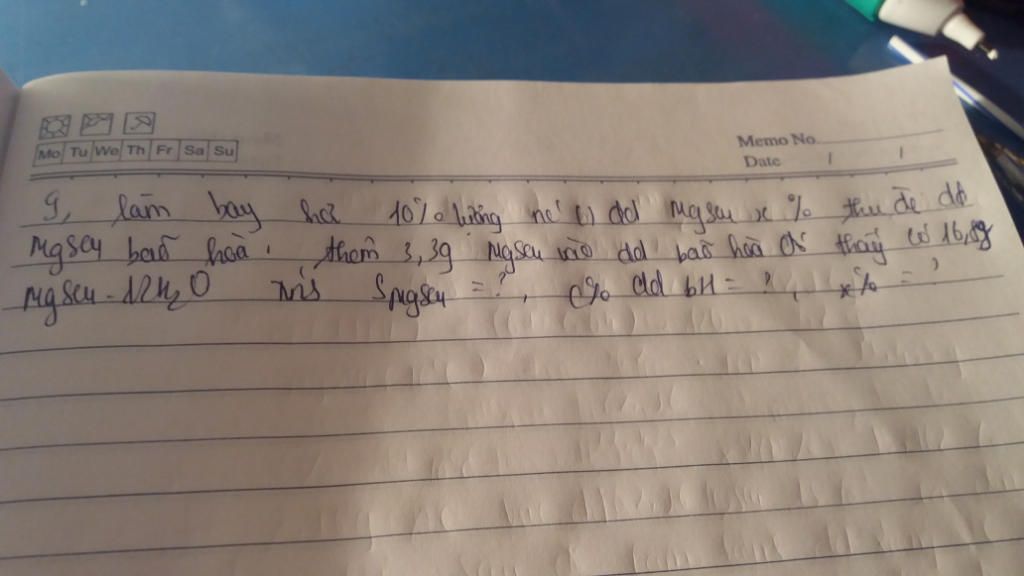 Mo Tu We Th Fr Sa Su
Memo No.
Date / /
9, làm bay hơi 10% lượng nc' () dd MgSO4 x% thu đc dd
MgSO4 baõ hoà. thêm 3,3g MgSO4 vào dd baõ hoà thấy có 16,8g
MgSO4.12H2O SMgSO4 = ?, C% dd bH = ?, x% = ?